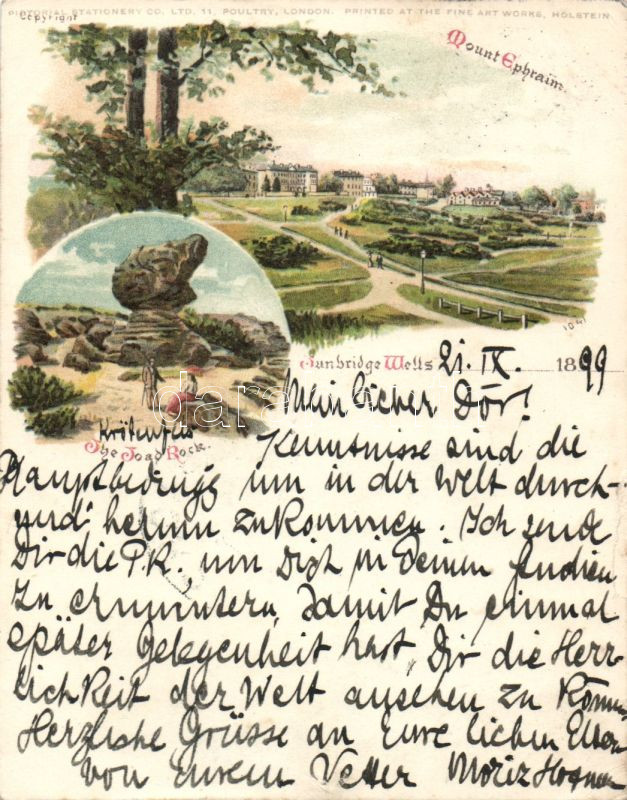 PICTORIAL STATIONERY CO. LTD. 11, POULTRY, LONDON. PRINTED AT THE FINE ART WORKS, HOLSTEIN.
Copyright
Mount Ephraim.
1041
Tunbridge Wells 21. IX. 1899
Mein lieber Dör!
Krötenfels
The Toad Rock.
Kenntnisse sind die
Hauptbedinge um in der Welt durch-
und herum zu kommen. Ich sende
Dir die P.K. um Dich in Deinen Studien
zu ermuntern, damit Du einmal
später Gelegenheit hast, Dir die Herr-
lichkeit der Welt ansehen zu können
Herzliche Grüsse an Eure lieben Eltern
von Eurem Vetter Moriz